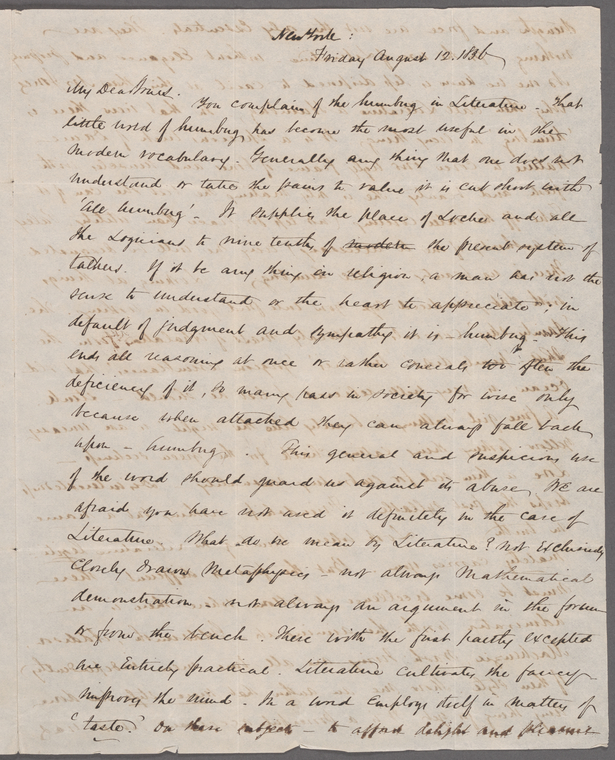 New York:
Friday August 12. 1836
My Dear
You complain of the humbug in Literature - That
little word of humbug has become the most useful in the
modern vocabulary. Generally any thing that one does not
understand or take the pains to value it is cut short with
'all humbug'. It supplies the place of Locke and all
the Logicians to nine tenths of modern the present system of
talkers. If it be any thing in religion, a man has not the
sense to understand or the heart to appreciate; in
default of judgment and sympathy it is - humbug. This
ends all reasoning at once or rather conceals too often the
deficiency of it, so many pass in society for wise only
because when attacked they can always fall back
upon - humbug. This general and suspicious use
of the word should guard us against its abuse. We are
afraid you have not used it definitely in the case of
Literature. What do we mean by Literature? not Exclusively
Closely drawn Metaphysics - not always Mathematical
demonstration - not always an argument in the forum
or from the bench. These with the first partly excepted
are Entirely practical. Literature cultivates the fancy
improves the mind. In a word Employs itself in matters of
'taste.' On these subjects - to afford delight and pleasure